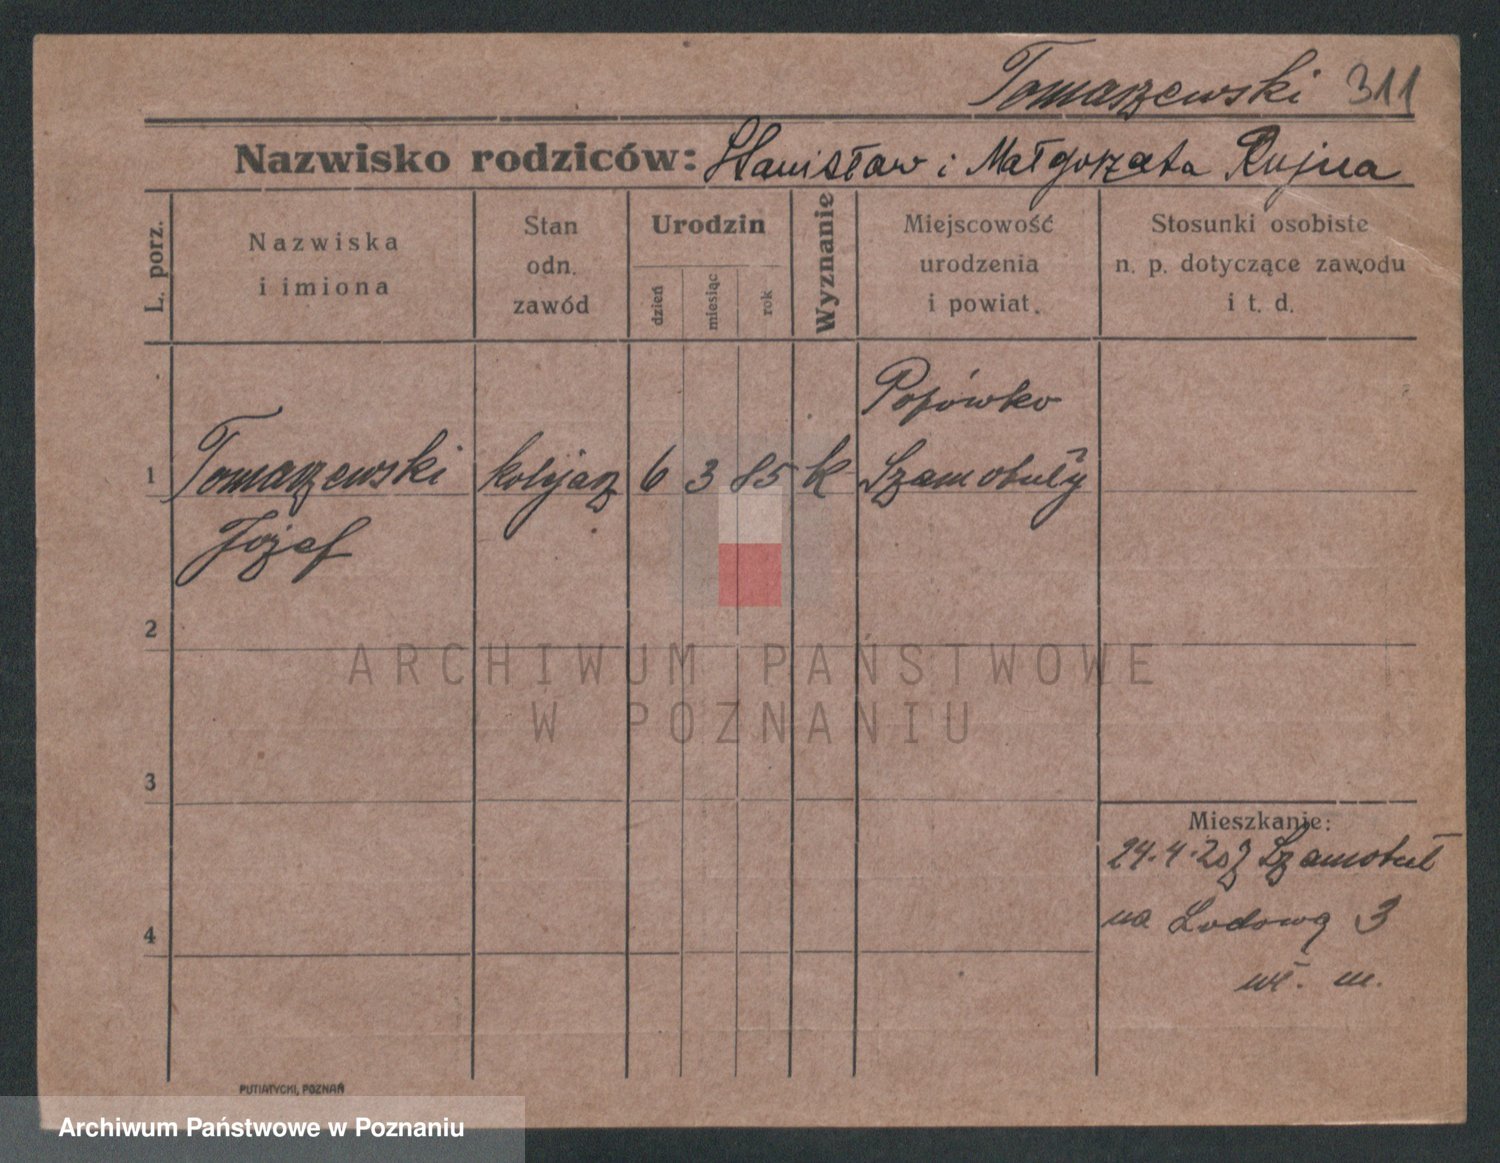 Tomaszewski 311
Nazwisko rodziców: Stanisław i Małgorzata Rujna
L. porz.
Nazwiska
i imiona
Stan
odn.
zawód
Urodzin
dzień
miesiąc
rok
Wyznanie
Miejscowość
urodzenia
i powiat.
Stosunki osobiste
n. p. dotyczące zawodu
i t. d.
Popówko
1 Tomaszewski kolejarz 6 3 85 k Szamotuły
Józef
2
ARCHIWUM PAŃSTWOWE
W POZNANIU
3
Mieszkanie:
24.4.20 z Szamotuł
na Lodową 3
4
wł. m.
PUTIATYCKI, POZNAŃ
Archiwum Państwowe w Poznaniu